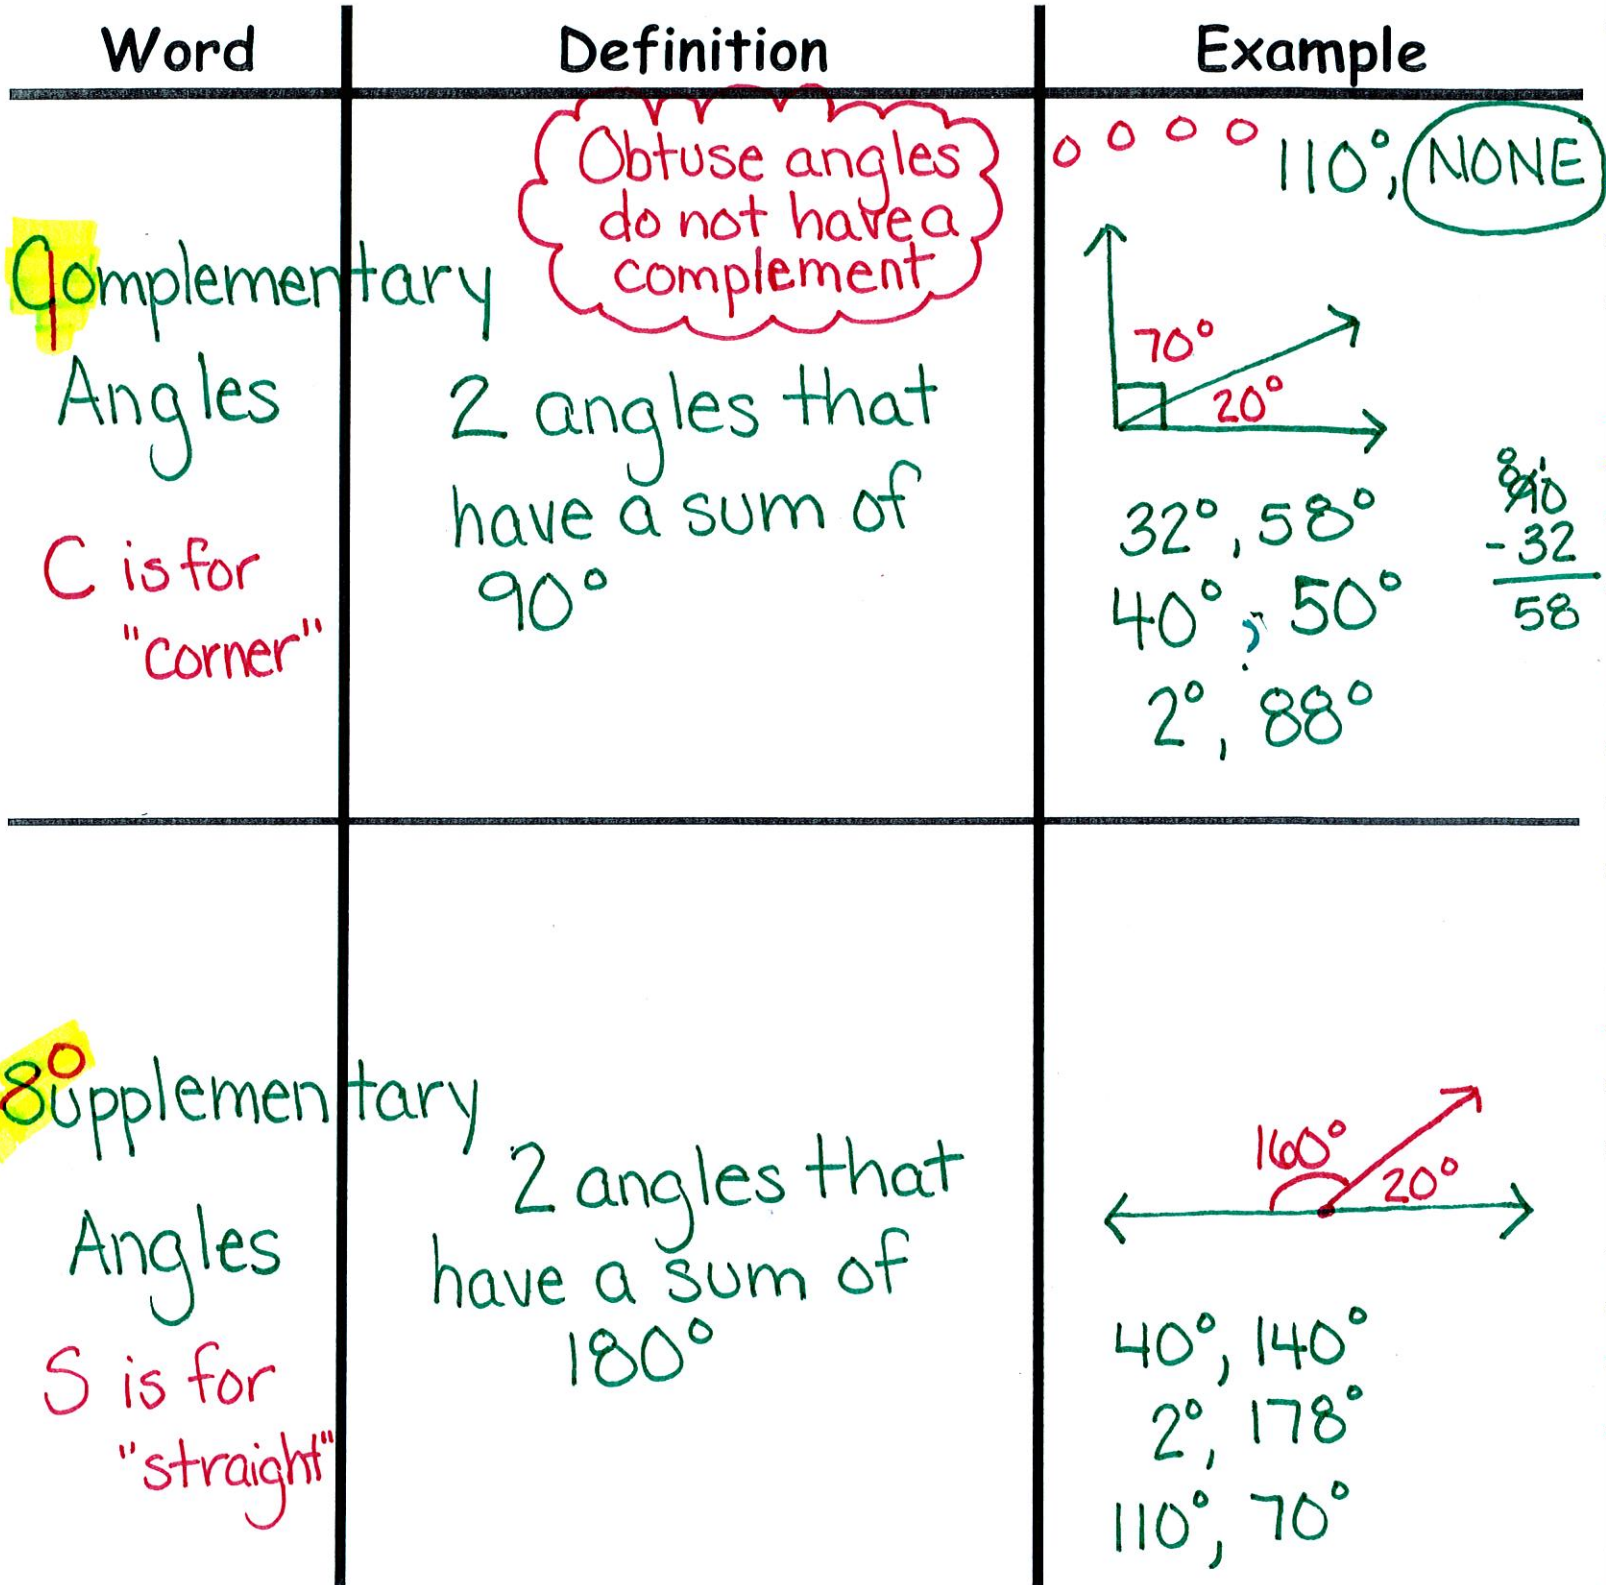 Word
Definition
Example
Complementary
Angles
C is for
"corner"
Obtuse angles
do not have a
complement
2 angles that
have a sum of
90°
110°, NONE
70°
20°
32°, 58°
40°, 50°
2°, 88°
8 1
90
- 32
58
Supplementary
Angles
S is for
"straight"
2 angles that
have a sum of
180°
160°
20°
40°, 140°
2°, 178°
110°, 70°